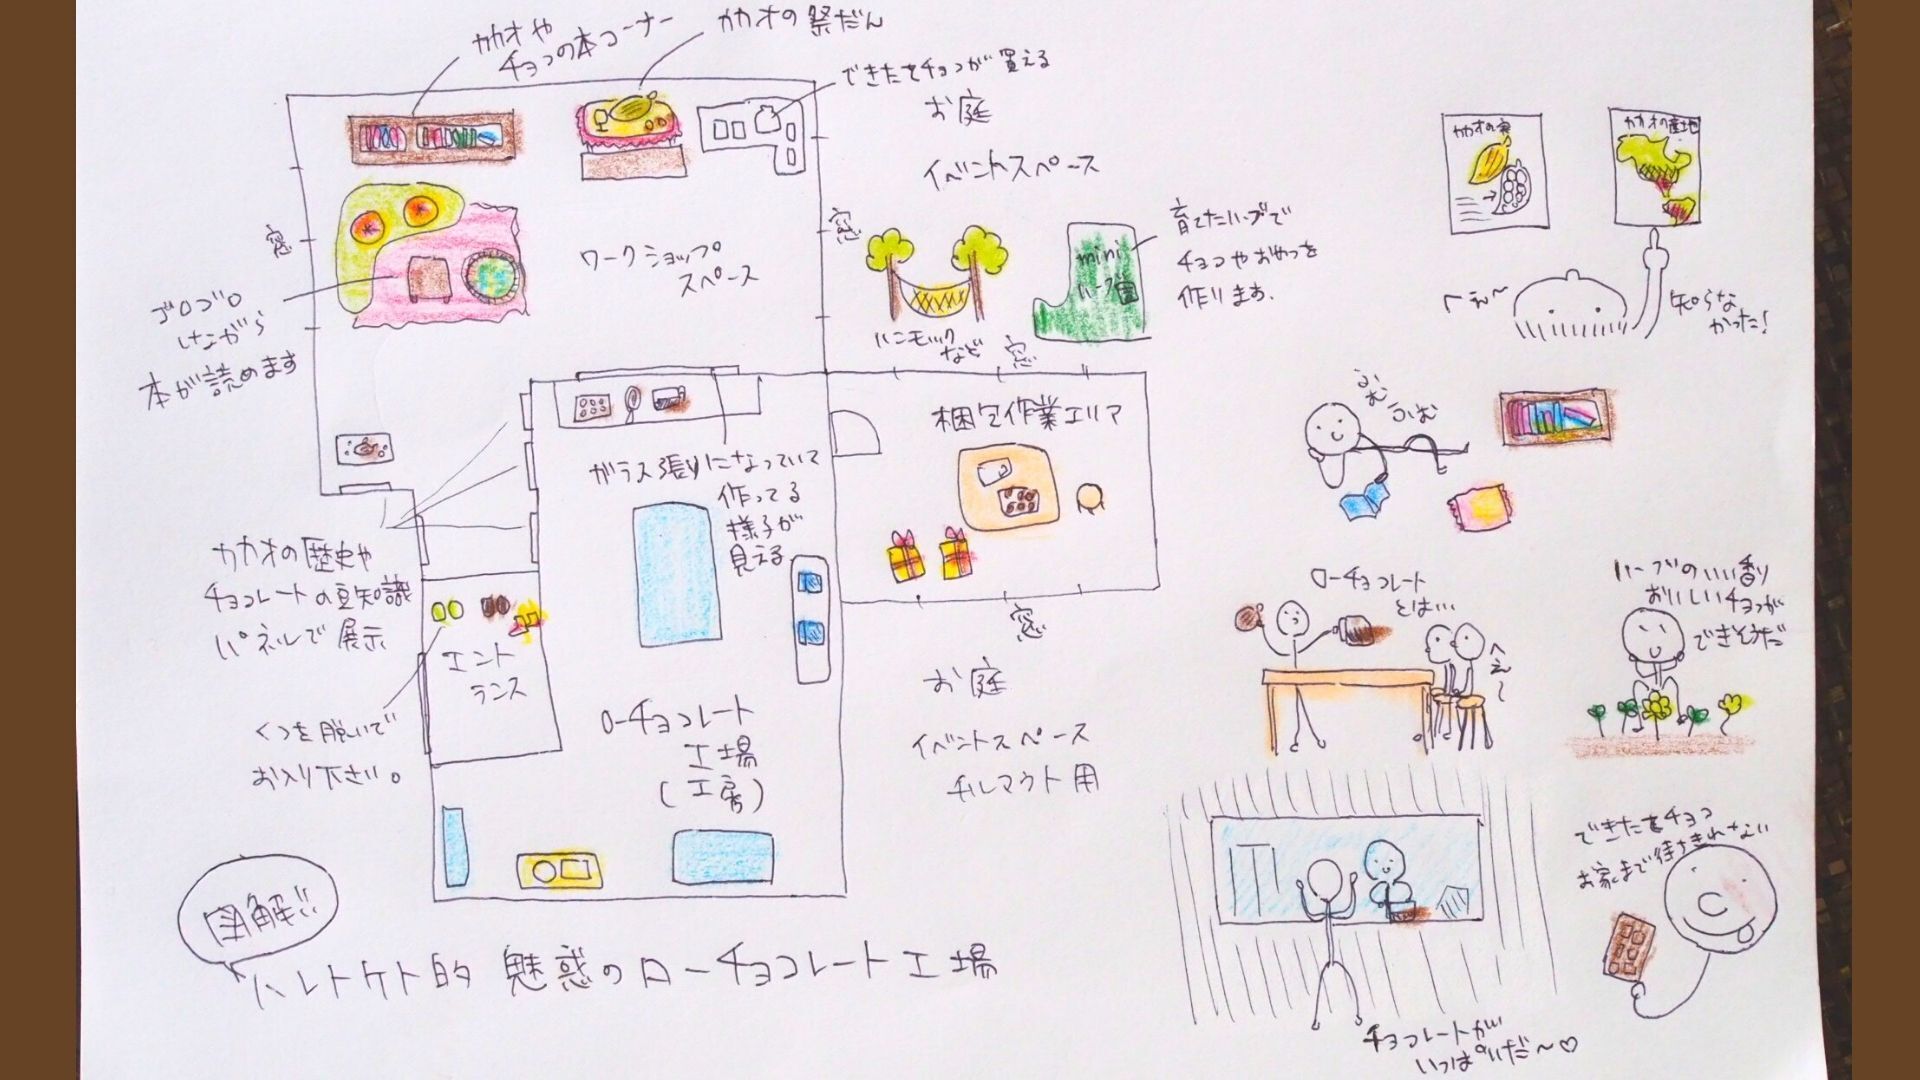 カカオや
チョコの本コーナー
カカオの祭だん
できたてチョコが買える
お庭
イベントスペース
カカオの実
カカオの産地
窓
窓
ワークショップ
スペース
mini
ハーブ園
育てたハーブで
チョコやおやつを
作ります.
ハンモック
など
窓
へぇ〜
知らな
かった!
ゴロゴロ
しながら
本が読めます
梱包作業エリア
ふむ
ふむ
ガラス張りになっていて
作ってる
様子が
見える
カカオの歴史や
チョコレートの豆知識
パネルで展示
エント
ランス
くつを脱いで
お入り下さい。
窓
お庭
イベントスペース
チルアウト用
ローチョコレート
工場
(工房)
ローチョコレート
とは…
へぇ〜
ハーブのいい香り
おいしいチョコが
できそうだ
できたてチョコ
お家まで待ちきれない
チョコレートが
いっぱいだ〜♡
図解!!
ハレトケト的 魅惑のローチョコレート工場